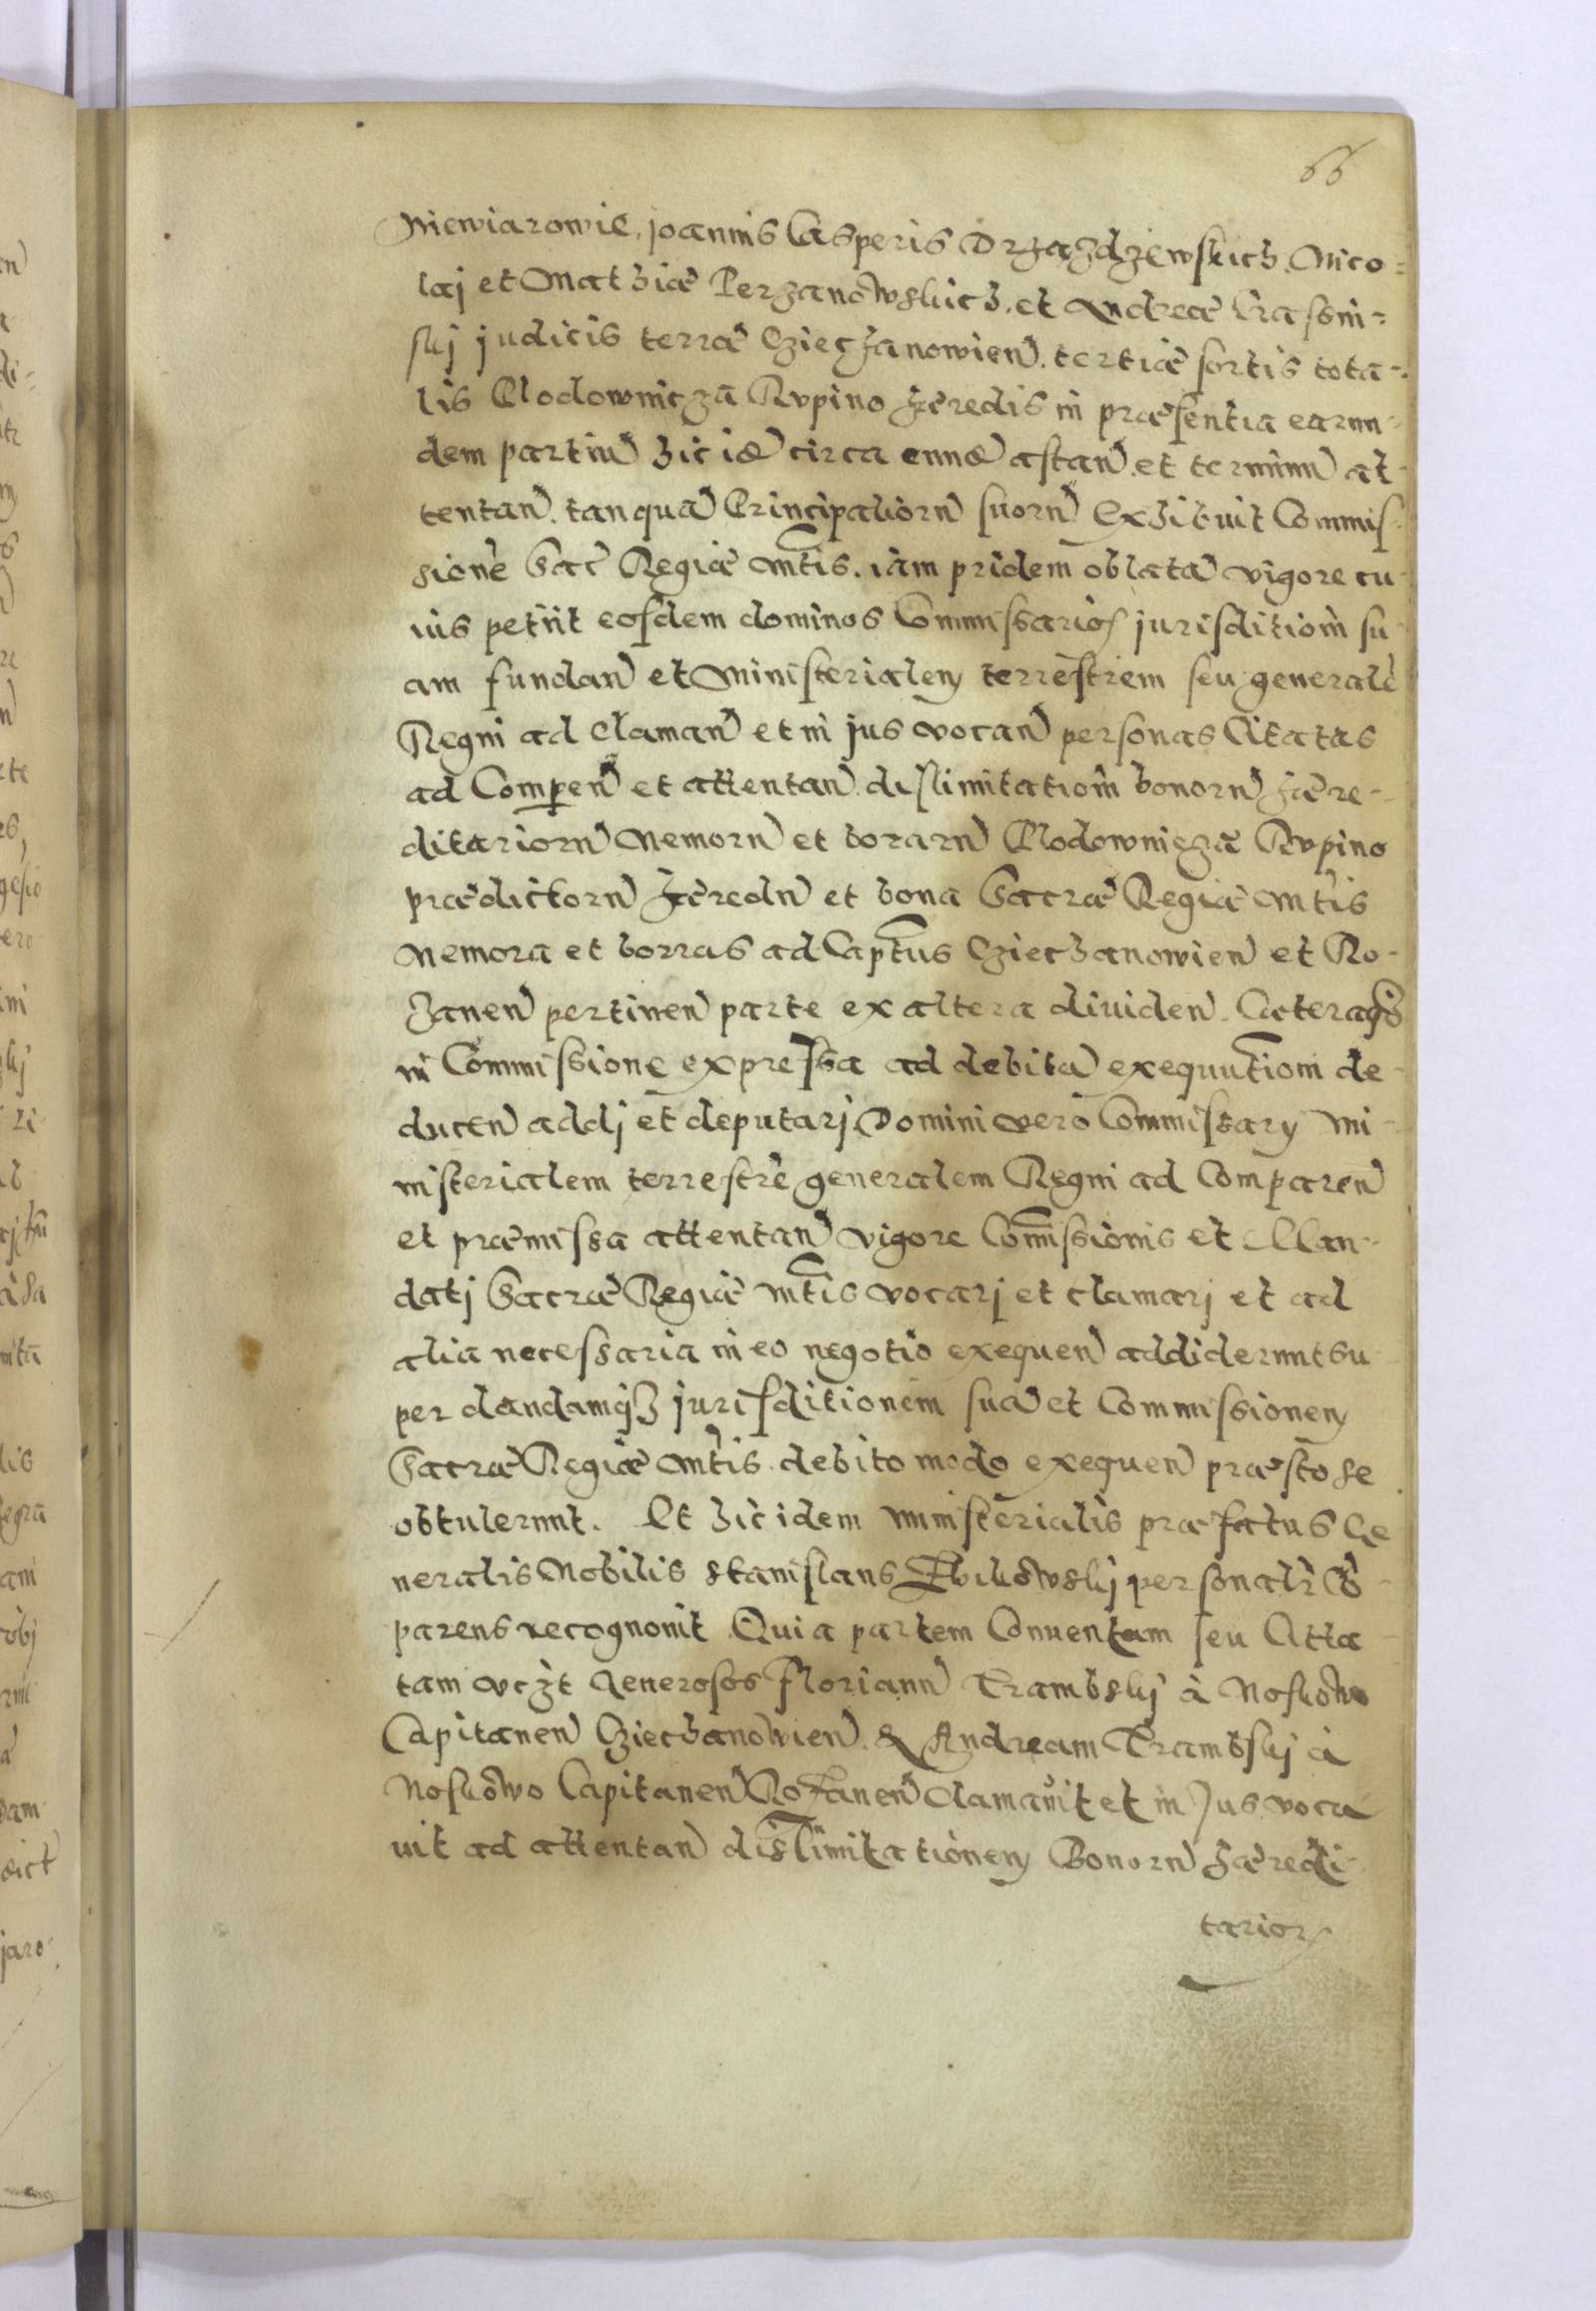 66
Niewiarowie, joannis Casperis Drzazdzewskich. Nico=
laj et Mathiæ Perzanowskich. et Andreæ Krassni=
skj judicis terræ Cziechanowien. tertiæ sortis tota=
lis Clodownicza Rupino hæredis in præsentia earun-
dem partiu hic id circa astan. et terminu at-
tentan. tanquā Principaliorū suorū Exhibuit Commis-
sionē Sac Regiæ Mtis. iam pridem oblatā vigore cu-
ius petiit eosdem dominos Commissarios jurisditiom su-
am fundan et Ministerialem terrestrem seu generalē
Regni ad claman et in jus vocan personas Citatas
ad Comparen et attentan dislimitatiom bonorū hære-
ditariorū Nemorū et borarū Clodownicza Rupino
prædictorū hæredū et bona Sacræ Regiæ Mtis
Nemora et borras ad Captus Cziechanowien et Ro-
zanen pertinen parte ex altera dividen. Cæteraqz
in Commissione expressa ad debitā exequutiom de-
ducen addj et deputarj Domini vero Commissary Mi-
nisterialem terrestrē generalem Regni ad Comparen
et præmissa attentan vigore Commissionis et Man-
datj Sacræ Regiæ Mtis vocarj et clamarj et ad
alia necessaria in eo negotio exequen addiderunt su-
per dandamqz jurisditionem suā et Commissionem
Sacræ Regiæ Mtis debito modo exequen præsto se
obtulerunt. Et hic idem ministerialis præfatus Ge-
neralis Nobilis Stanislaus personalr Co-
parens recognovit Quia partem Conventam seu Citta-
tam vczt Generosos Florianū Srambskj à Noskowo
Capitaneū Cziechanowien. & Andream Srambskj à
Noskowo Capitaneū Rozanen clamavit et in Jus voca-
vit ad attentan dislimitationem Bonorū hæredi-
tarior